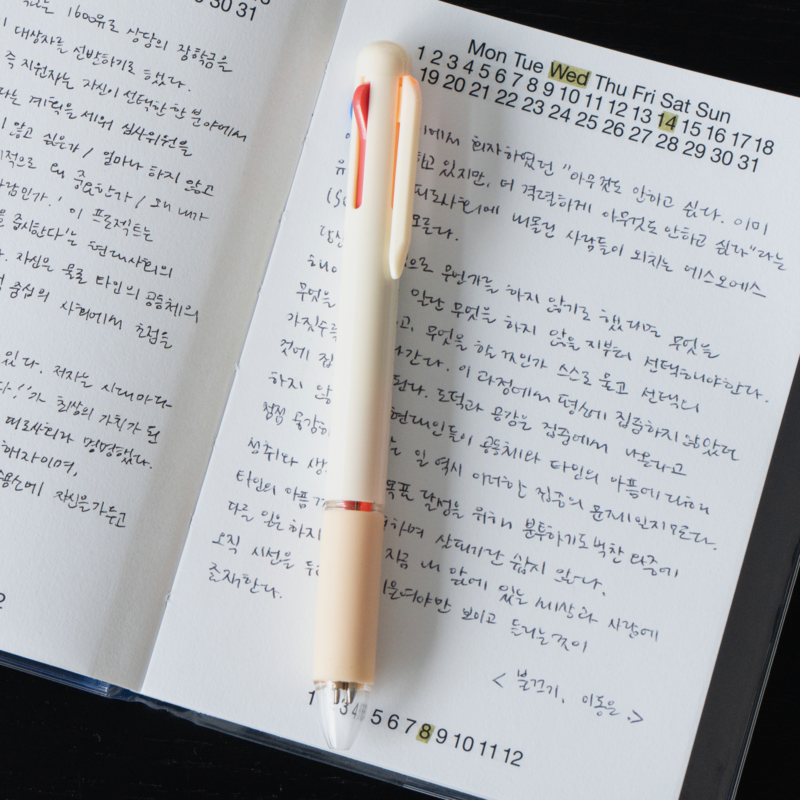 30 31
1600유로 상당의 장학금을
대상자를 선발하기로 했다.
즉 지원자는 자신이 선택한 한 분야에서
계획을 세워 심사위원을
않고 싶은가 / 얼마나 하지 않고
적으로 왜 중요한가 / 왜 내가
사람인가.' 이 프로젝트는
중시한다'는 현대사회의
자신을 물론 타인의 공동체의
중심의 사회에서 초점을
있다. 저자는 시대마다
가 최상의 가치가 된
피로사회라 명명했다.
해자이며,
자신을 가두고
2
Mon Tue Wed Thu Fri Sat Sun
1 2 3 4 5 6 7 8 9 10 11 12 13 14 15 16 17 18
19 20 21 22 23 24 25 26 27 28 29 30 31
에서 회자하였던 "아무것도 안하고 싶다. 이미
하고 있지만, 더 격렬하게 아무것도 안하고 싶다"라는
피로사회에 내몰린 사람들이 외치는 에스오에스
모른다.
으로 무언가를 하지 않기로 했다면 무엇을
무엇을 일단 무엇을 하지 않을지부터 선택해야한다.
고, 무엇을 할 것인가 스스로 묻고 선택
것에 집 간다. 이 과정에서 평소에 집중하지 않았던
하지 않 된다. 도덕과 공감은 집중에서 나온다고
점점 공감하 현대인들이 공동체와 타인의 아픔에 대해
성취와 생 는 일 역시 이러한 집중의 문제인지 모른다.
타인의 아픔 목표 달성을 위해 분투하기도 벅찬 와중에
다른 일은 하지 하며 살피기란 쉽지 않다.
오직 시선을 두 지금 내 앞에 있는 세상과 사람에
존재한다. 울여야만 보이고 들리는 것이
< 불끄기, 이동은.>
1 3 4 5 6 7 8 9 10 11 12